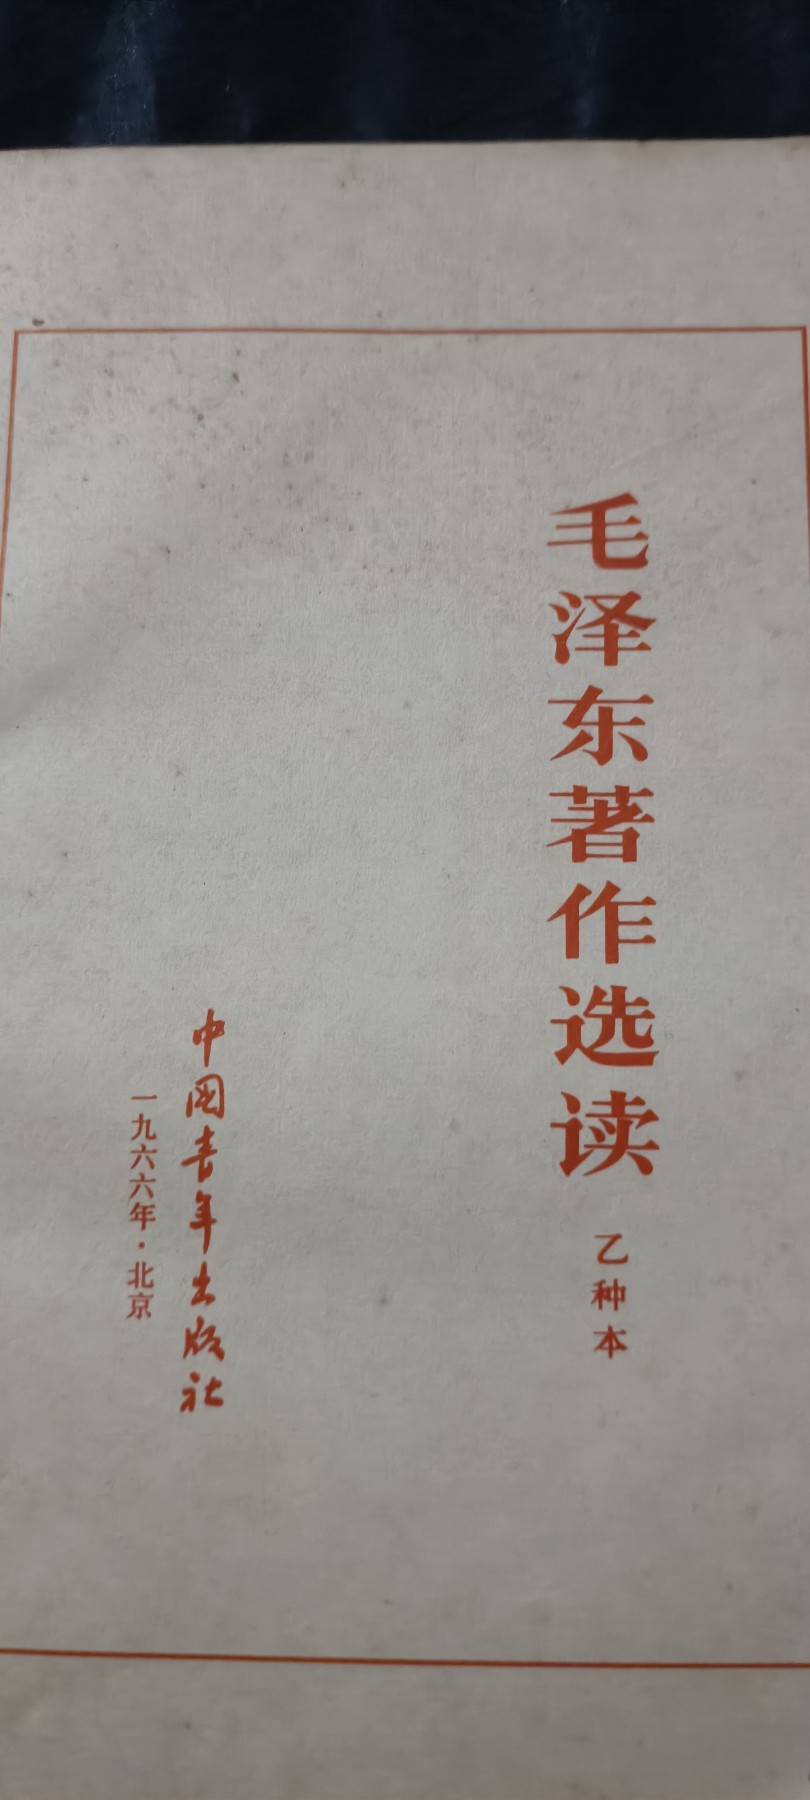 毛泽东著作选读
乙种本
中国青年出版社
一九六六年·北京